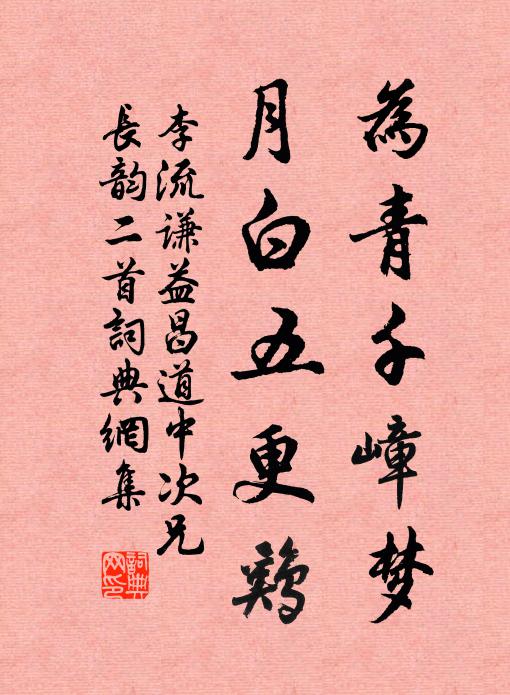 為青千嶂梦
月白五更鷄
李流谦益昌道中次兄
長韵二首詞典網集
詞典網印